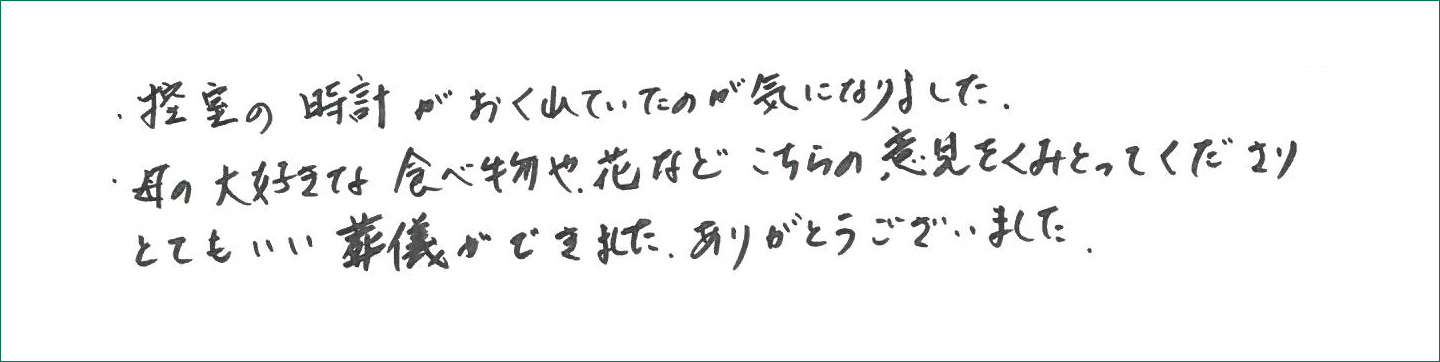 ・控室の時計がおくれていたのが気になりました.
・母の大好きな食べ物や.花など こちらの意見をくみとってくださり
とてもいい葬儀ができました.ありがとうございました.